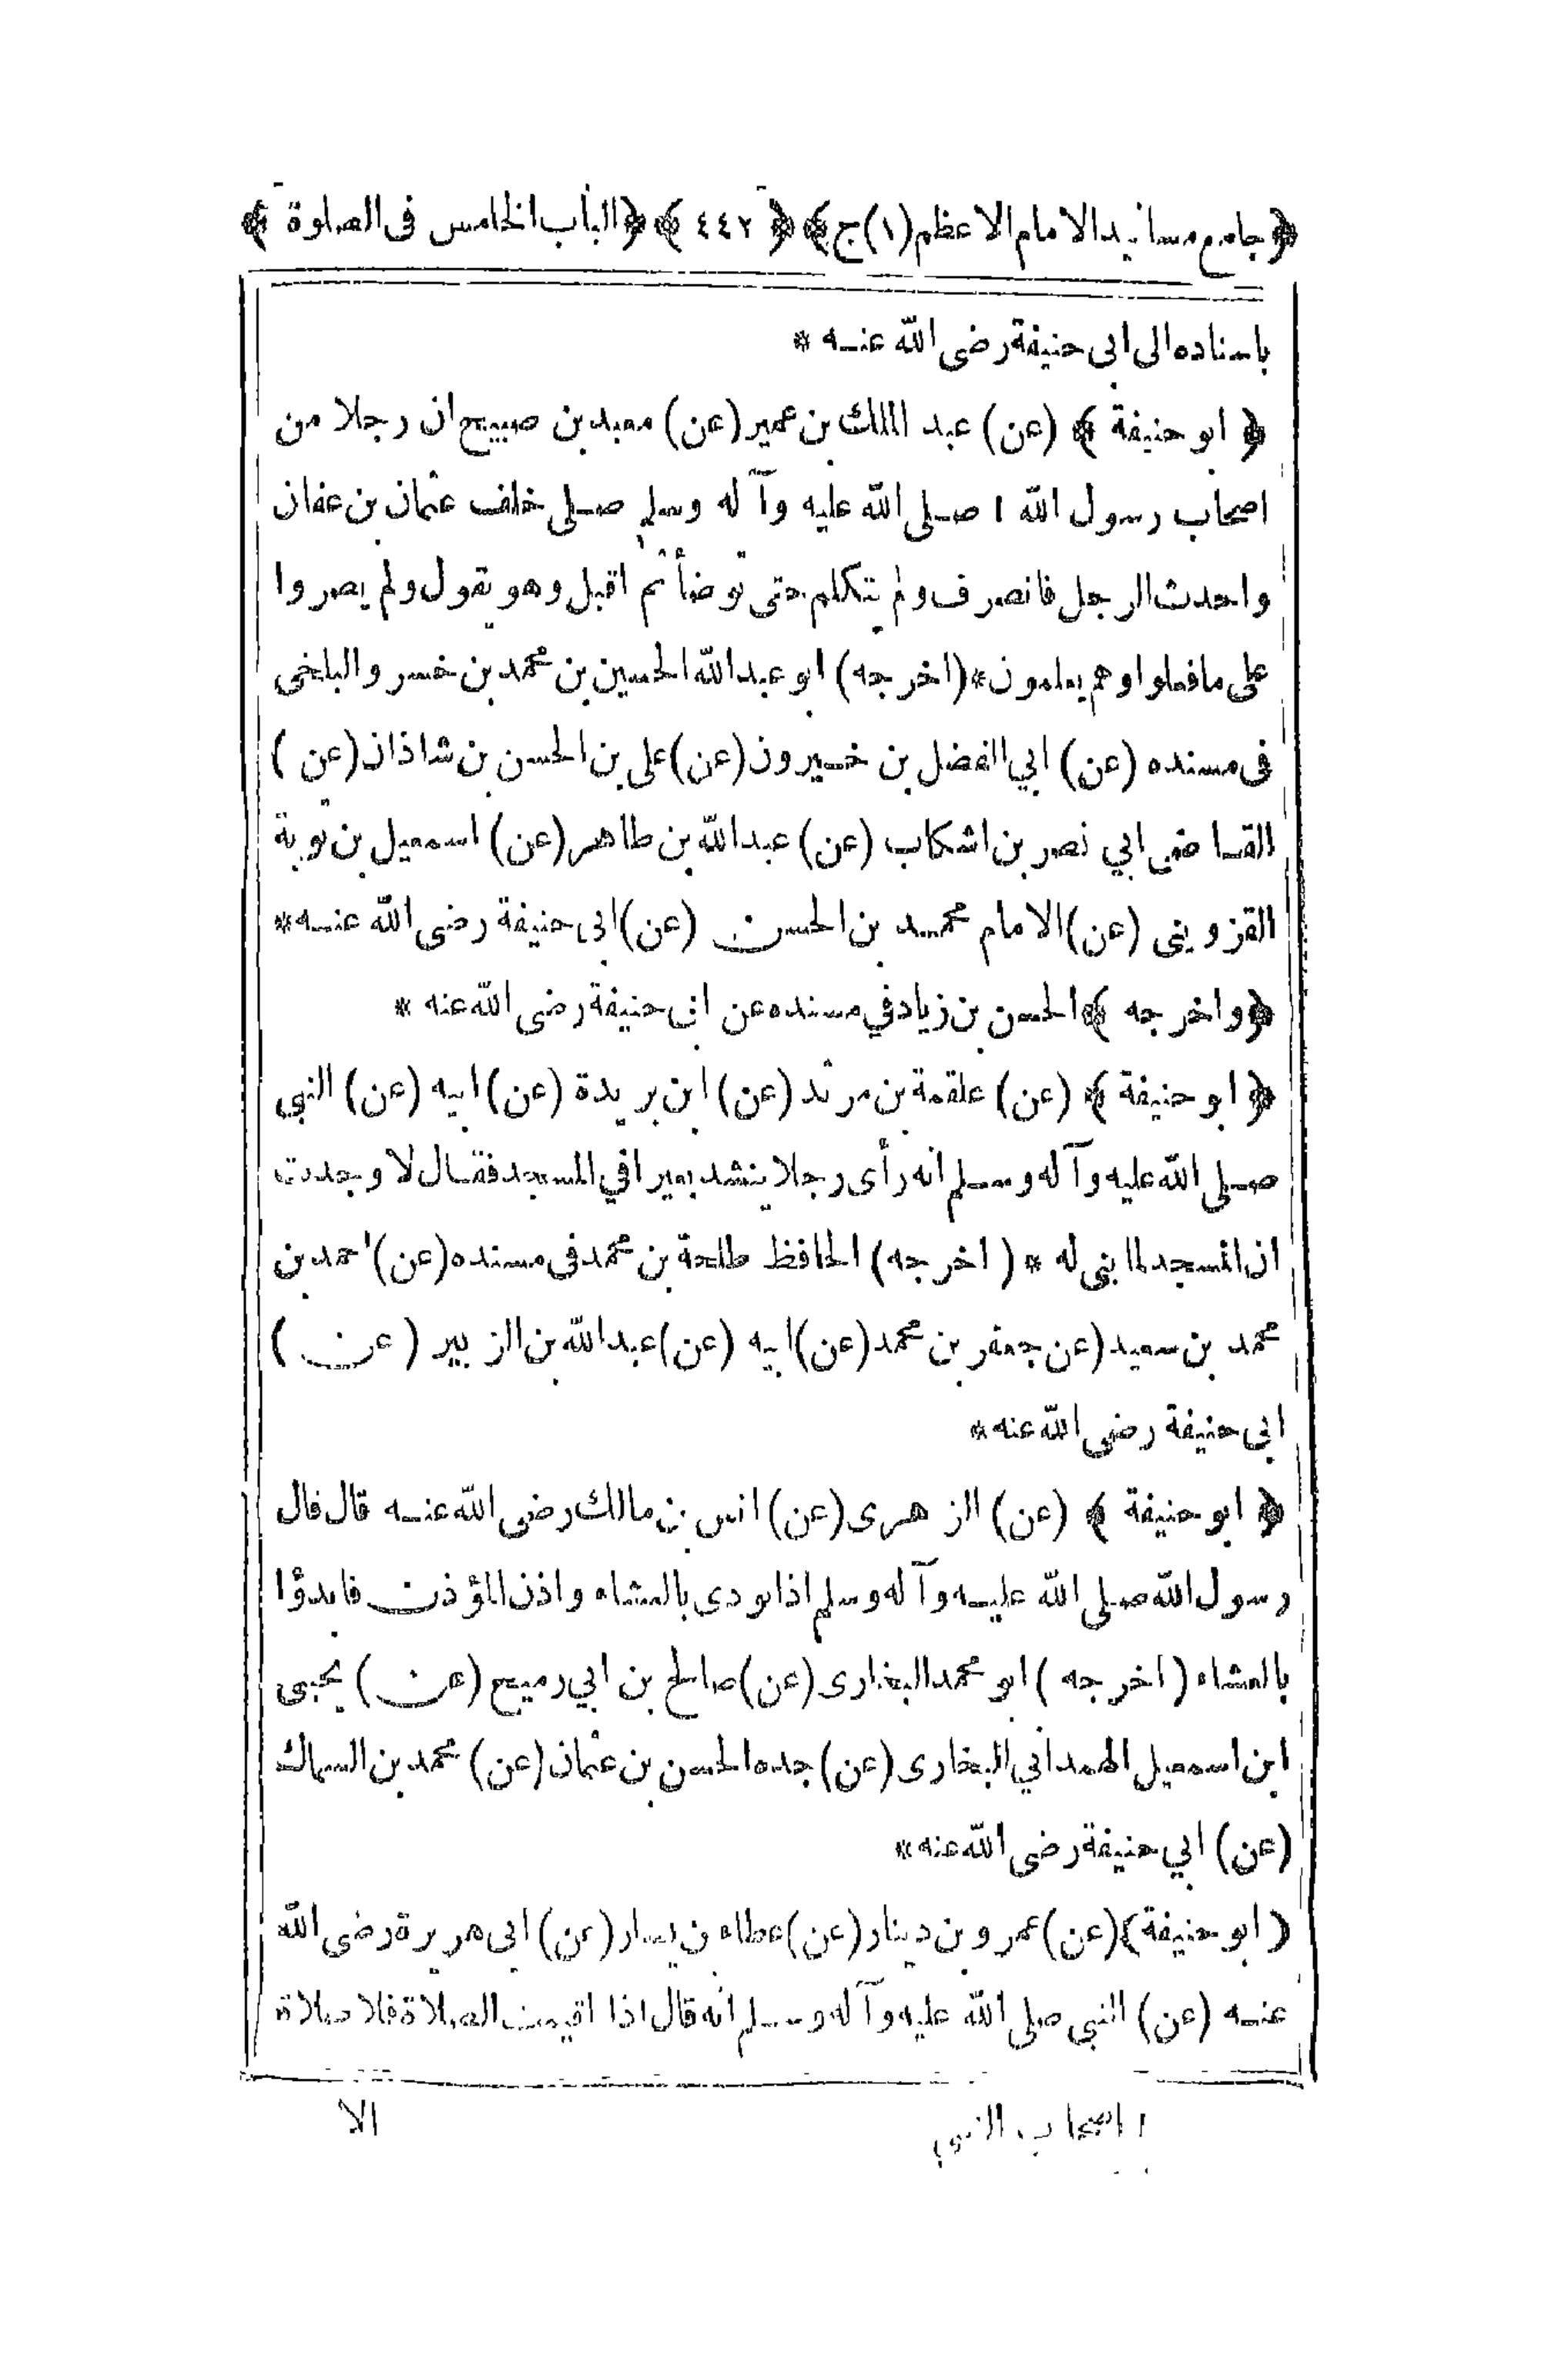 ﴿جامع مسانيد الامام الاعظم(١)ج﴾ ﴿٤٤٢﴾ ﴿الباب الخامس فى الصلوة﴾
باسناده الى ابى حنيفة رضى الله عنه *
﴿ ابو حنيفة ﴾ (عن) عبد الملك بن عمير (عن) معبد بن صبيح ان رجلا من
اصحاب رسول الله ١ صلى الله عليه وآله وسلم صلى خلف عثمان بن عفان
واحدث الرجل فانصرف ولم يتكلم حتى توضأ ثم اقبل وهو يقول ولم يصروا
على ما فعلوا وهم يعلمون *(اخرجه) ابو عبد الله الحسين بن محمد بن خسرو البلخى
فى مسنده (عن) ابي الفضل بن خيرون (عن) على بن الحسن بن شاذان (عن)
القاضى ابي نصر بن اشكاب (عن) عبد الله بن طاهر (عن) اسمعيل بن توبة
القزوينى (عن) الامام محمد بن الحسن (عن) ابى حنيفة رضى الله عنه *
﴿واخرجه﴾ الحسن بن زياد في مسنده عن ابى حنيفة رضى الله عنه *
﴿ ابو حنيفة ﴾ (عن) علقمة بن مرثد (عن) ابن بريدة (عن) ابيه (عن) النبي
صلى الله عليه وآله وسلم انه رأى رجلا ينشد بعيرا في المسجد فقال لا وجدت
ان المسجد لما بنى له * (اخرجه) الحافظ طلحة بن محمد فى مسنده (عن) احمد بن
محمد بن سعيد (عن جعفر بن محمد (عن) ابيه (عن) عبد الله بن الزبير (عن)
ابى حنيفة رضى الله عنه *
﴿ ابو حنيفة ﴾ (عن) الزهرى (عن) انس بن مالك رضى الله عنه قال قال
رسول الله صلى الله عليه وآله وسلم اذا نودى بالعشاء واذن المؤذن فابدؤا
بالعشاء (اخرجه) ابو محمد البخارى (عن) صالح بن ابي رميح (عن) يحيى
ابن اسمعيل الهمدانى البخارى (عن) جده الحسن بن عثمان (عن) محمد بن السماك
(عن) ابي حنيفة رضى الله عنه *
﴿ابو حنيفة﴾ (عن) عمرو بن دينار (عن) عطاء بن يسار (عن) ابى هريرة رضى الله
عنه (عن) النبي صلى الله عليه وآله وسلم انه قال اذا اقيمت الصلاة فلا صلاة
١ اصحاب النبي
الا